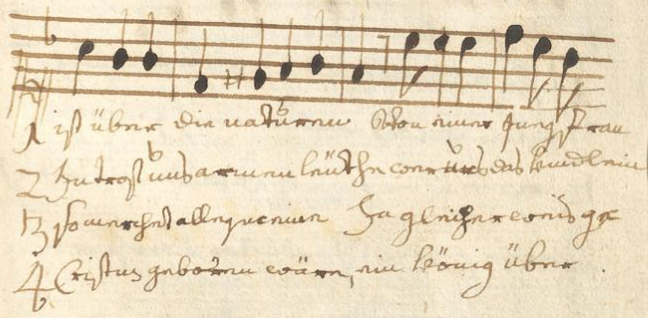 1 ist über die naturen Von einer Jungfrau
2 Zu trost uns armen leüthe wer uns das kindlein
3 so mercket allgemeine Zu gleicher weis
4 Cristus geboren wäre, ein könig über